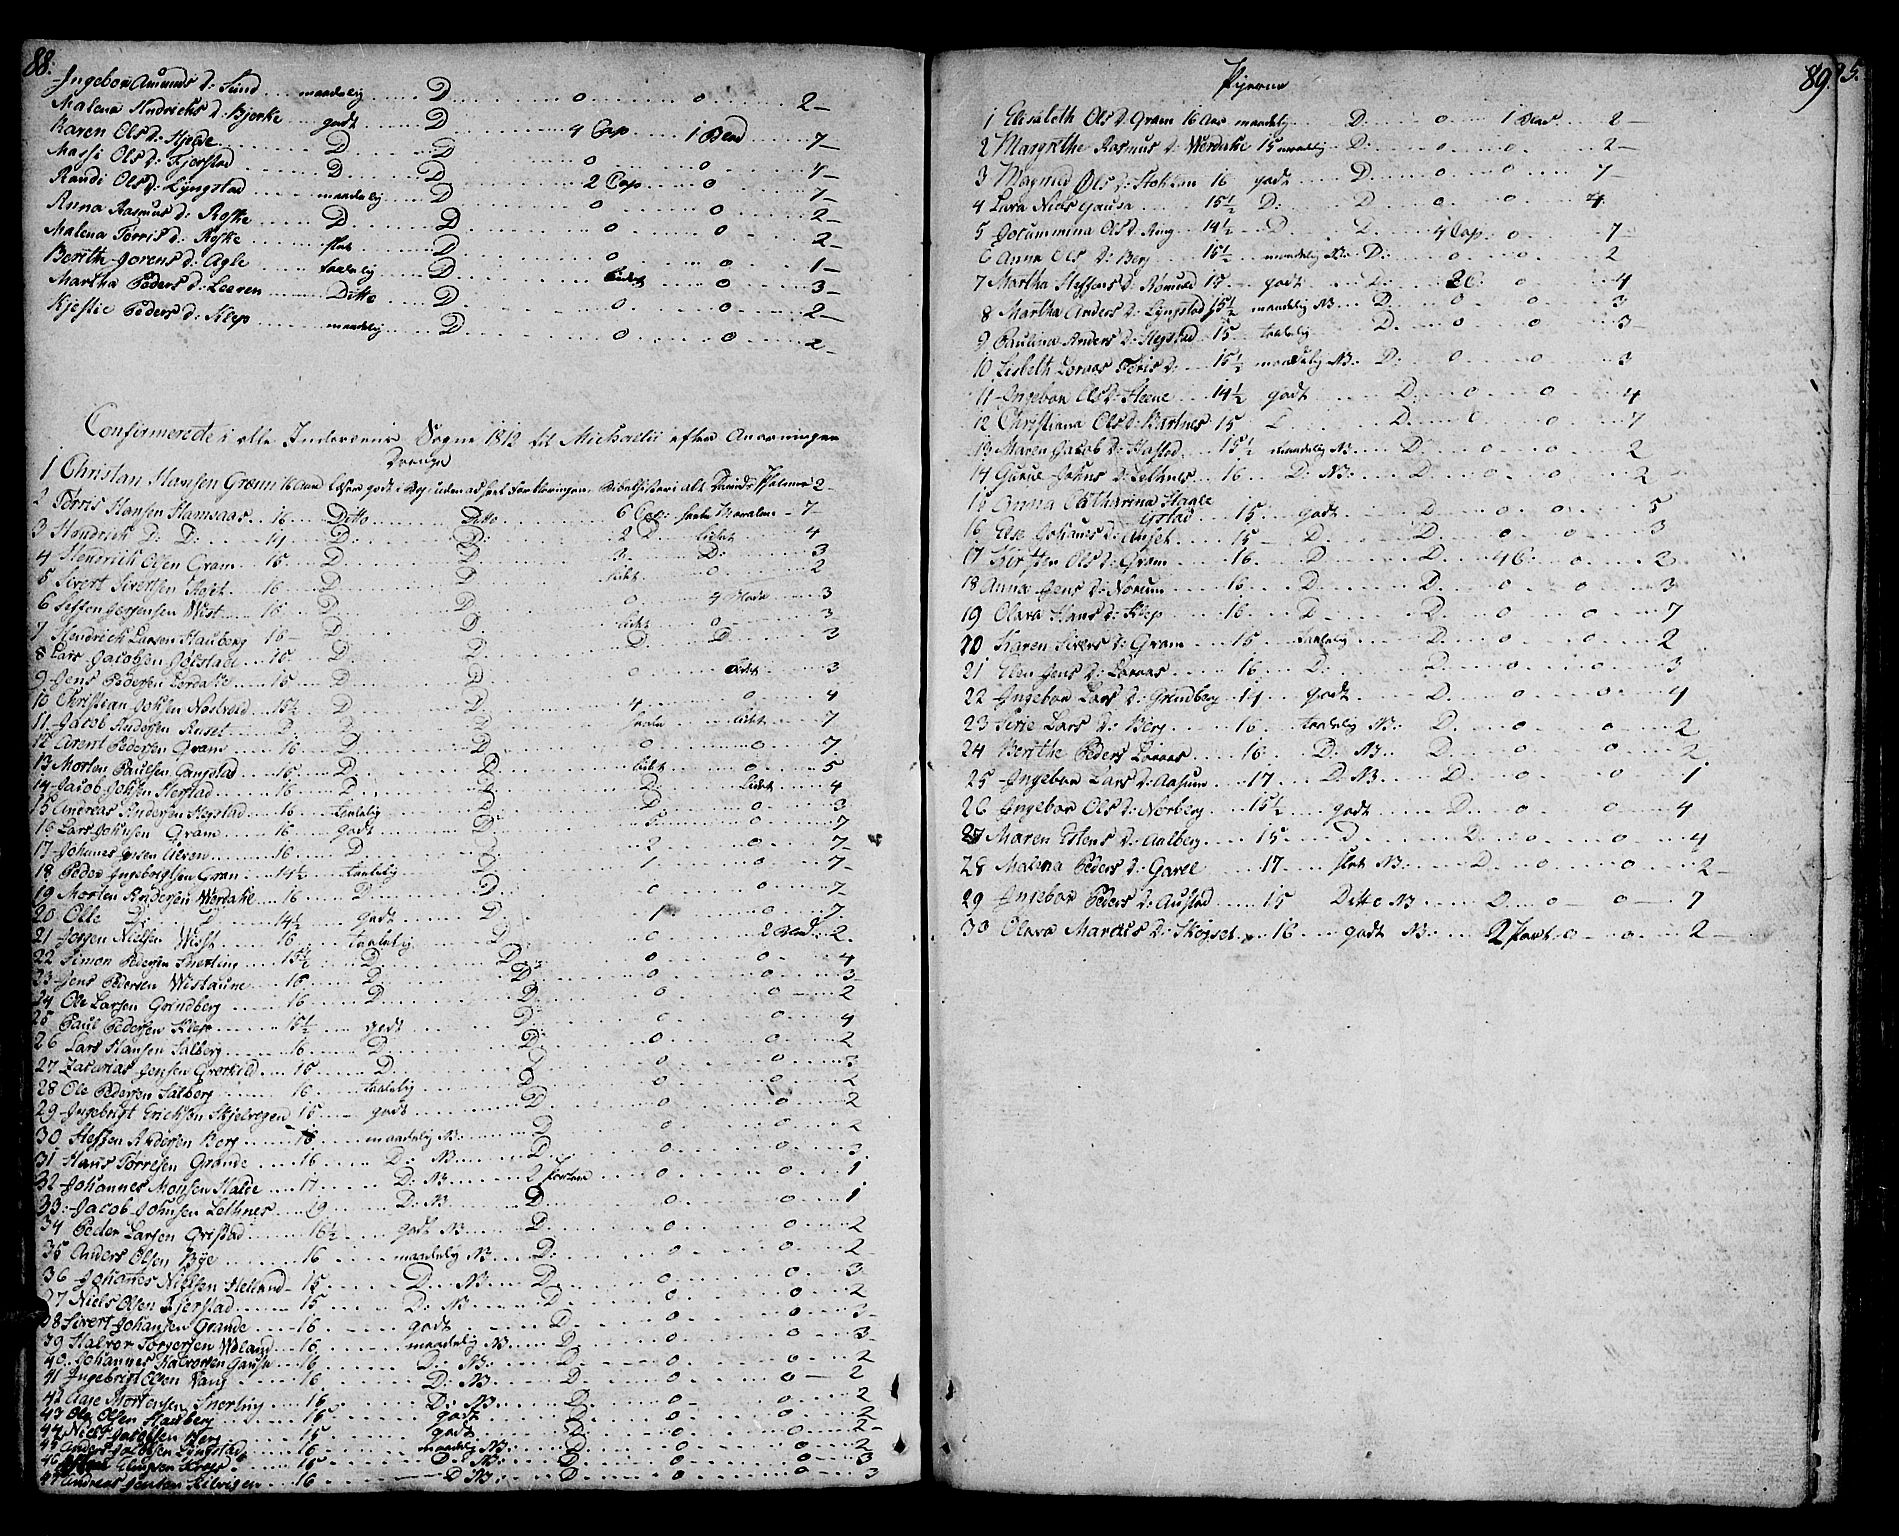 88.
Ingebor Amunds d: Sund maadelig D 0 0 2
Malena Hindrichs d: Bjerke godt D 4 Cap 1 Blad 7
Karen Ols d: Hjelde D D 0 0 4
Massi Ols d: Fjerstad D D 2 Cap 0 7
Randi Ols d: Lyngstad maadelig D 0 0 2
Anna Rasmus d: Roske D D 0 0 2
Malena Torris d: Roske slet D 0 0 1
Berith Jorens d: Agle taalelig D Lidet 0 3
Martha Peders d: Leeren Ditto D 0 0 2
Kjestie Peders d: Klep maadelig D 0 0 2
Confirmerede i alle Inderøens Sogne 1812 til Michaelii efter Anordningen
Drenge
1 Christan Hansen Grønn 16 Aar læser godt i Bog uden ad heel Forklaringen Bibelhistori alt Davids Psalmer 2
2 Torris Hansen Hamsaas 16 Ditto Ditto 6 Cap: 7
3 Hendrich D: D: 14 D: D: 2 D lidet 4
4 Hendrich Olsen Gram 15 D D D: 3
5 Sivert Sivertsen 16 D D lidet 0 2
6 Steffen Jørgensen Wist 15 D D 0 4 Blade 3
7 Hendrich Larsen Hauberg 16 D lidet 0 3
8 Lars Jacobsen Jølstad 15 D D D D 3
9 Jens Pedersen 15 D D 0 Lidet 3
10 Christian Johsen 15½ D D 4 0 4
11 Jacob Andersen Auset D: D lidet 7
12 Arent Pedersen Gram 16 D D 0 0 7
13 Morten Paulsen Gangstad 15 D D lidet 0 5
14 Jacob Johsen Hegstad 16 D D D: lidet 4
15 Andreas Andersen Hegstad 16 taalelig D 0 3
16 Lars Johnsen Gram 16 godt D 5 0 7
17 Johanes Jensen 16 D D 2 0 7
18 Peder Ingebrigtsen Gran 14½ taalelig D 1 0 7
19 Morten Andersen Werdahl 16 D D 0 0 7
20 Olle D: D 14½ godt D 1 0 7
21 Jørgen Nielsen Wist 16 taalelig D 0 2 Blad 2
22 Simon Pedersen Snerting 15½ D D 0 0 4
23 Jens Pedersen Wistaune 16 D D 0 0 3
24 Ole Larsen Grindberg 16 D D 0 0 2
25 Paul Pedersen Klep 15½ godt D 0 0 4
26 Lars Hansen Salberg 16 D D 0 0 2
27 Zacarias Jensen 15 D D 0 0 3
28 Ole Pedersen Salberg 16 taalelig D 0 0 2
29 Ingebrigt Erichsen Skjelvegen 15 godt D 0 0 2
30 Steffen Andersen Berg 16 maadelig NB: D 0 0 2
31 Hans Torresen Grande 16 D: NB D 0 0 3
32 Johannes Monsen 17 D: NB 2 Parten 0 0 1
33 Jacob Johnsen Lethnes 19 D: NB D 0 0 1
34 Peder Larsen Gristad 16½ godt NB D: 0 0 2
35 Anders Olsen Bye 16 maadelig NB D: 0 0 2
36 Johanes Nielsen Helland 15 D: NB D 0 0 3
37 Niels Olsen Fjerstad 15 D: NB D: 0 0 2
38 Sivert Johansen Grande 16 godt D 0 0 3
39 Halvor 16 maadelig NB D 0 0 3
40 Johannes Halvorsen 16 D: NB: D 0 0 2
41 Ingebrigt Olsen Vang 16 D: NB D 0 0 2
42 Aage Mortensen Snerting 16 D: NB D: 0 0 2
43 Ole Olsen Hauberg 15 godt D: 0 0 2
44 Niels Jacobsen Berg 15 godt D: 0 0 2
45 Anders Jacobsen Lyngstad 16 maadelig NB D 0 0 2
46 15 D: NB: D 0 0 3
47 Andreas Jensen 16 D NB: D 0 0 3
89. 95.
Pigerne
1 Elisabeth Ols d: Gram 16 Aar maadelig D. 0 1 Blad 2
2 Margrethe Rasmus d: Werdahl 15 maadelig D: 0 0 2
3 Magnild Ols d: Stokkan 16 godt D: 0 0 7
4 Lava Niels Gausa 15½ D: D 0 0 4
5 Jocummina Ols d: 14½ D D. 4 Cap 0 7
6 Anna Ols d: Berg 15½ maadelig NB: D: 0 0 2
7 Martha Steffens d: 15 godt D: 2 C: 0 4
8 Martha Anders d: Lyngstad 15½ maadelig NB D: 0 0 3
9 Paulina Anders d: Hegstad 15 taalelig D: 0 0 3
10 Lisbeth Toris d: 15½ maadelig NB: D: 0 0 3
11 Ingebor Ols d: Steene 14½ godt D: 0 0 4
12 Christiana Ols d: Bartnes 15 D: 0 7
13 Maren Jacob d: Hastad 15½ maadelig NB: D 0 0 2
14 Guruc Johns d: Lethnes 16 D: NB: D 0 0 2
15 Anna Catharina Haagestad 15 godt D: 0 0 5
16 Else Johanes d: Auset 15 D: D: 0 0 3
17 Kirsten Ols d: Gram 16 D D. 4 C: 0 3
18 Anna Jens d: Norum 16 D: D: 0 0 3
19 Olava Hans d: Klep 16 D D: 0 0 7
20 Karen Siverts d: Gram 15 taalelig D: 0 0 2
21 Elen Jens d: 16 D: D: 0 0 3
22 Ingebor Lars d: Grindberg 14 godt D: 0 0 4
23 Sirie Lars d: Berg 16 taalelig NB: D: 0 0 2
24 Berithe Peders 16 D: NB: D: 0 0 2
25 Ingebor Lars d: Aasum 17 D: NB D: 0 0 1
26 Ingebor Ols d: Norberg 15½ godt D: 0 0 4
27 Maren Estens d: Aalberg 15 D: D: 0 0 4
28 Malena Peders d: 17 slet NB: D: 0 0 2
29 Ingebor Peders d: Austad 15 Ditto NB D. 0 0 7
30 Olava Marcus d: Skejset 16 godt NB: 2 Part 0 0 2